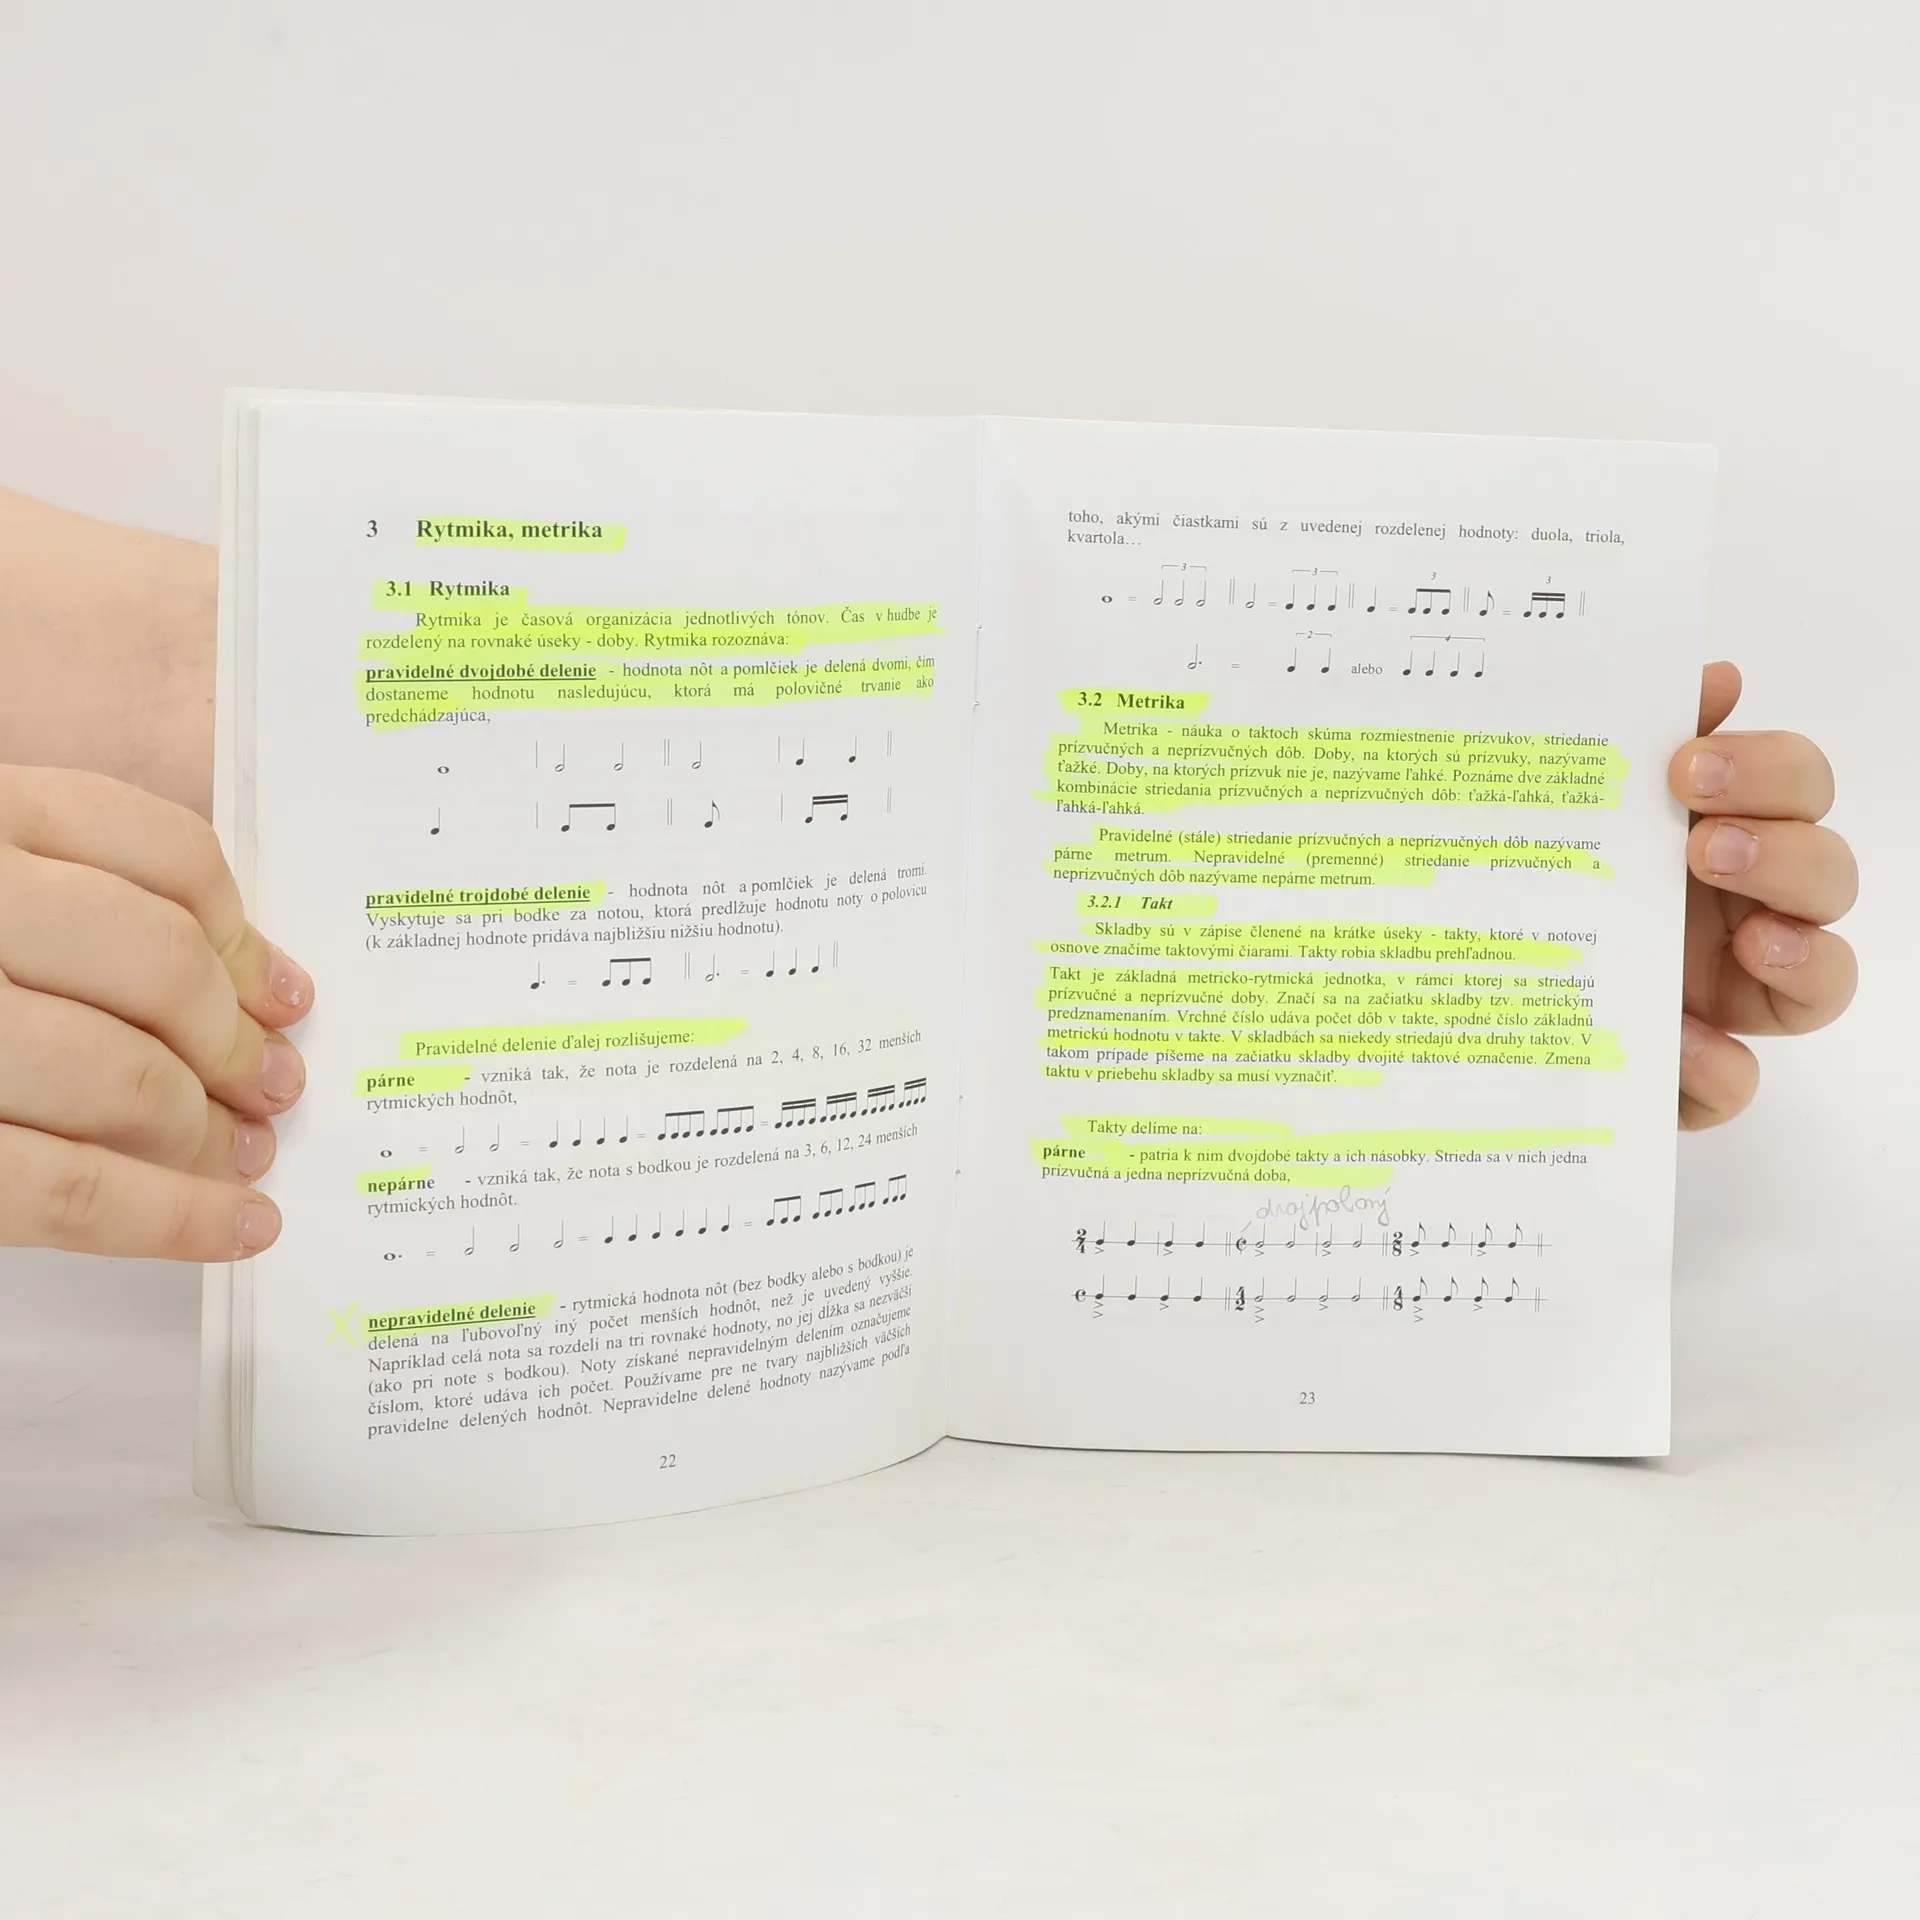 3 Rytmika, metrika
3.1 Rytmika
Rytmika je časová organizácia jednotlivých tónov. Čas v hudbe je
rozdelený na rovnaké úseky - doby. Rytmika rozoznáva:
pravidelné dvojdobé delenie - hodnota nôt a pomlčiek je delená dvomi, čím
dostaneme hodnotu nasledujúcu, ktorá má polovičné trvanie ako
predchádzajúca,
pravidelné trojdobé delenie - hodnota nôt a pomlčiek je delená tromi.
Vyskytuje sa pri bodke za notou, ktorá predlžuje hodnotu noty o polovicu
(k základnej hodnote pridáva najbližšiu nižšiu hodnotu).
Pravidelné delenie ďalej rozlišujeme:
párne - vzniká tak, že nota je rozdelená na 2, 4, 8, 16, 32 menších
rytmických hodnôt,
nepárne - vzniká tak, že nota s bodkou je rozdelená na 3, 6, 12, 24 menších
rytmických hodnôt.
nepravidelné delenie - rytmická hodnota nôt (bez bodky alebo s bodkou) je
delená na ľubovoľný iný počet menších hodnôt, než je uvedený vyššie.
Napríklad celá nota sa rozdelí na tri rovnaké hodnoty, no jej dĺžka sa nezväčší
(ako pri note s bodkou). Noty získané nepravidelným delením označujeme
číslom, ktoré udáva ich počet. Používame pre ne tvary najbližších väčších
pravidelne delených hodnôt. Nepravidelne delené hodnoty nazývame podľa
22
toho, akými čiastkami sú z uvedenej rozdelenej hodnoty: duola, triola,
kvartola...
3 3 3 3
2 alebo 4
3.2 Metrika
Metrika - náuka o taktoch skúma rozmiestnenie prízvukov, striedanie
prízvučných a neprízvučných dôb. Doby, na ktorých sú prízvuky, nazývame
ťažké. Doby, na ktorých prízvuk nie je, nazývame ľahké. Poznáme dve základné
kombinácie striedania prízvučných a neprízvučných dôb: ťažká-ľahká, ťažká-
ľahká-ľahká.
Pravidelné (stále) striedanie prízvučných a neprízvučných dôb nazývame
párne metrum. Nepravidelné (premenné) striedanie prízvučných a
neprízvučných dôb nazývame nepárne metrum.
3.2.1 Takt
Skladby sú v zápise členené na krátke úseky - takty, ktoré v notovej
osnove značíme taktovými čiarami. Takty robia skladbu prehľadnou.
Takt je základná metricko-rytmická jednotka, v rámci ktorej sa striedajú
prízvučné a neprízvučné doby. Značí sa na začiatku skladby tzv. metrickým
predznamenaním. Vrchné číslo udáva počet dôb v takte, spodné číslo základnú
metrickú hodnotu v takte. V skladbách sa niekedy striedajú dva druhy taktov. V
takom prípade píšeme na začiatku skladby dvojité taktové označenie. Zmena
taktu v priebehu skladby sa musí vyznačiť.
Takty delíme na:
párne - patria k nim dvojdobé takty a ich násobky. Strieda sa v nich jedna
prízvučná a jedna neprízvučná doba,
2/4 2/8
4/2 4/8
23